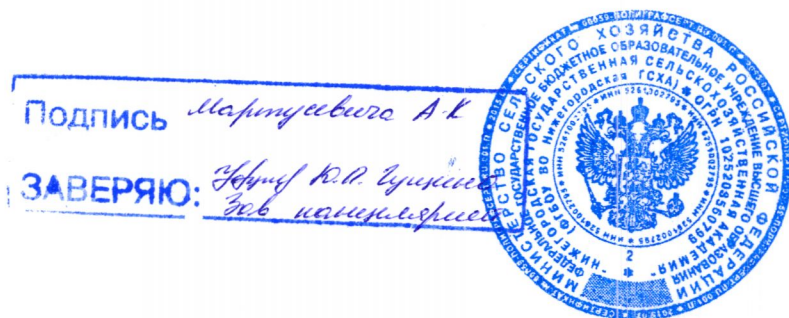 Подпись Мартусевича А.К
ЗАВЕРЯЮ: Ю.А.
Зав канцелярией
МИНИСТЕРСТВО СЕЛЬСКОГО ХОЗЯЙСТВА РОССИЙСКОЙ ФЕДЕРАЦИИ
ФЕДЕРАЛЬНОЕ ГОСУДАРСТВЕННОЕ БЮДЖЕТНОЕ ОБРАЗОВАТЕЛЬНОЕ УЧРЕЖДЕНИЕ ВЫСШЕГО ОБРАЗОВАНИЯ
"НИЖЕГОРОДСКАЯ ГОСУДАРСТВЕННАЯ СЕЛЬСКОХОЗЯЙСТВЕННАЯ АКАДЕМИЯ"
(ФГБОУ ВО Нижегородская ГСХА) * ОГРН 1025203560799
* ИНН 5261002795
2